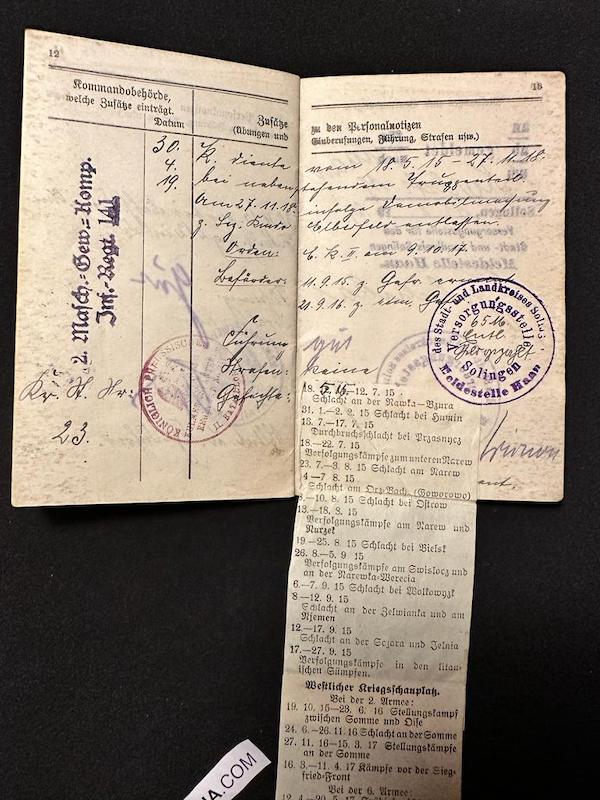 12
Kommandobehörde,
welche Zusätze einträgt.
Datum
Zusätze
(Übungen und
2. Masch.-Gew.-Komp.
Inf.-Regt. 141
30.
4.
19.
K. diente
bei neben
am 27.11.18
Orden:
Beförder:
Führung
Strafen:
Gefechte:
gut
Kr. St. Nr.
23.
KÖNIGLICH PREUSSISCHES
13
zu den Personalnotizen
Einberufungen, Führung, Strafen usw.)
vom 18.5.15 - 27.11.18
stehendem Truppenteil.
infolge Demobilmachung
Elberfeld entlassen.
E. K. II. am 9.10.17.
11.9.15 z. Gefr.
21.9.16 z.
gut
keine
des Stadt- und Landkreises
Versorgungsstelle
Solingen
Meldestelle Haan
18. 5. 15—12. 7. 15
Schlacht an der Rawka-Bzura
31. 1.—2. 2. 15 Schlacht bei Humin
13. 7.—17. 7. 15
Durchbruchschlacht bei Przasnysz
18.—22. 7. 15
Verfolgungskämpfe zum unteren Narew
23. 7.—3. 8. 15 Schlacht am Narew
4—7 8. 15
Schlacht am Orz-Bach. (Goworowo)
8.—10. 8. 15 Schlacht bei Ostrow
13.—18. 8. 15
Verfolgungskämpfe am Narew und
Nurzek
19—25. 8. 15 Schlacht bei Bielsk
26. 8.—5. 9 15
Verfolgungskämpfe am Swislocz und
an der Narewka-Werecia
6.—7. 9. 15 Schlacht bei Wolkowysk
8—12. 9. 15
Schlacht an der Zelwianka und am
Njemen
12.—17. 9. 15
Schlacht an der Sczara und Jelnia
17.—27. 9. 15
Verfolgungskämpfe in den litau-
ischen Sümpfen.
Westlicher Kriegsschauplatz.
Bei der 2. Armee:
19. 10. 15—23. 6. 16 Stellungskampf
zwischen Somme und Oise
24. 6.—26. 11. 16 Schlacht an der Somme
27. 11. 16—15. 3. 17 Stellungskämpfe
an der Somme
16. 3.—11. 4. 17 Kämpfe vor der Sieg-
fried-Front
Bei der 6. Armee:
.COM